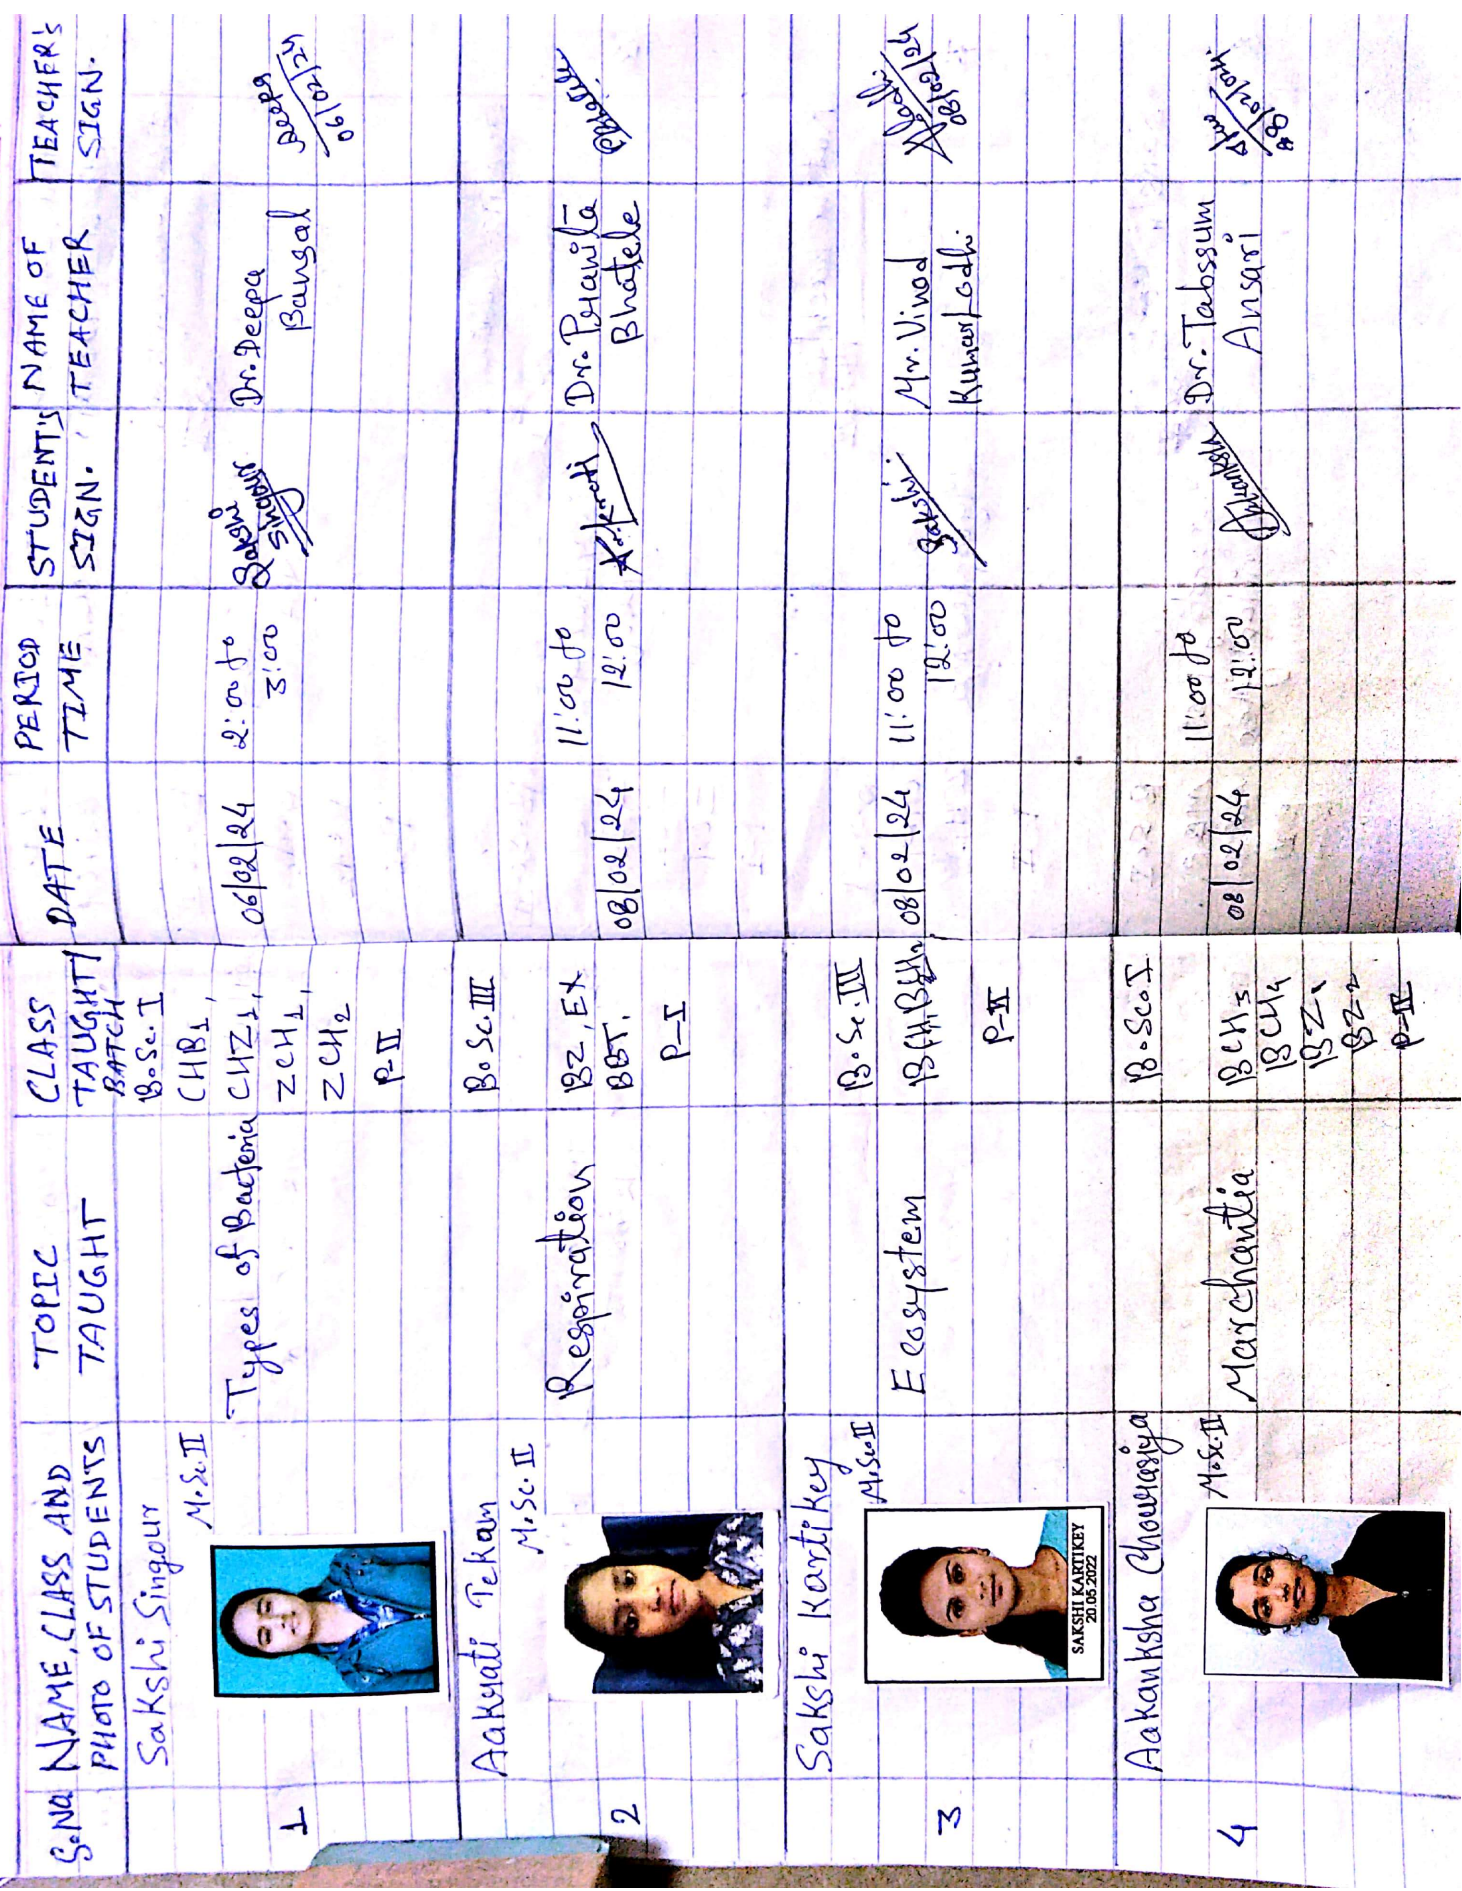 S.No NAME, CLASS AND PHOTO OF STUDENTS TOPIC TAUGHT CLASS TAUGHT/ BATCH DATE PERIOD TIME STUDENT'S SIGN. NAME OF TEACHER TEACHER'S SIGN.
1
Sakshi Singour
M.Sc. II
Types of Bacteria
B.Sc. I
CHB1,
CHZ1,
ZCH1,
ZCH2
P-II
06/02/24
2:00 to
3:00
Sakshi
Singour
Dr. Deepa
Bangal
Deepa
06/02/24
2
Aakrati Tekam
M.Sc. II
Respiration
B.Sc. III
BZ, EX
BBT,
P-I
08/02/24
11:00 to
12:00
Aakrati
Dr. Pranita
Bhatele
3
Sakshi Kartikey
M.Sc. II
SAKSHI KARTIKEY
20.05.2022
Ecosystem
B.Sc. III
08/02/24
11:00 to
12:00
Sakshi
Mr. Vinod
Kumar Lodhi
08/02/24
4
Aakanksha Chourasiya
M.Sc. II
Marchantia
B.Sc. I
BCH3
BCH4
BZ1
BZ2
P-II
08/02/24
11:00 to
12:00
Aakanksha
Dr. Tabssum
Ansari